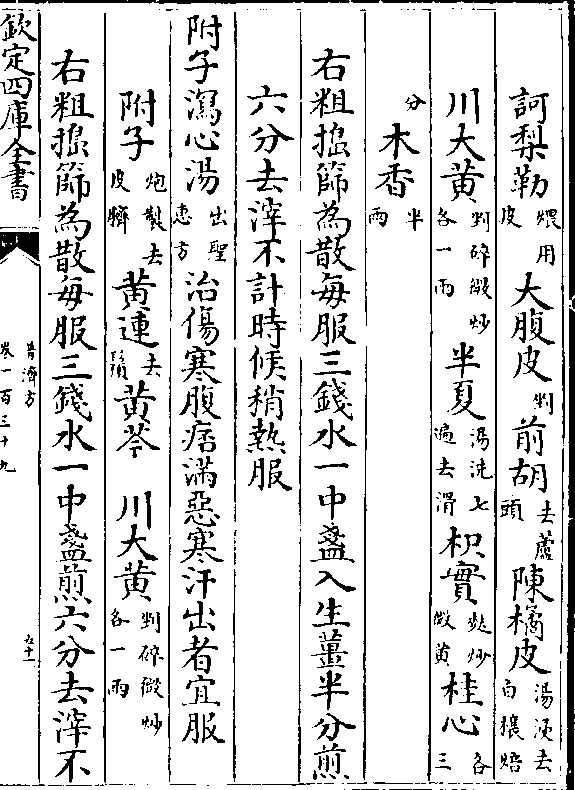 訶梨勒煨用皮 大腹皮剉 前胡去蘆頭 陳橘皮湯浸去白穰焙
川大黄剉碎微炒各一兩 半夏湯洗七遍去滑 枳實麩炒微黄 桂心各三
分 木香半兩
右粗搗篩為散每服三錢水一中盞入生薑半分煎
六分去滓不計時候稍熱服
附子瀉心湯出聖惠方 治傷寒腹痞滿惡寒汗出者宜服
附子炮製去皮臍 黄連去鬚 黄芩 川大黄剉碎微炒各一兩
右粗搗篩為散每服三錢水一中盞煎六分去滓不
欽定四庫全書
普濟方
卷一百三十九
五十一